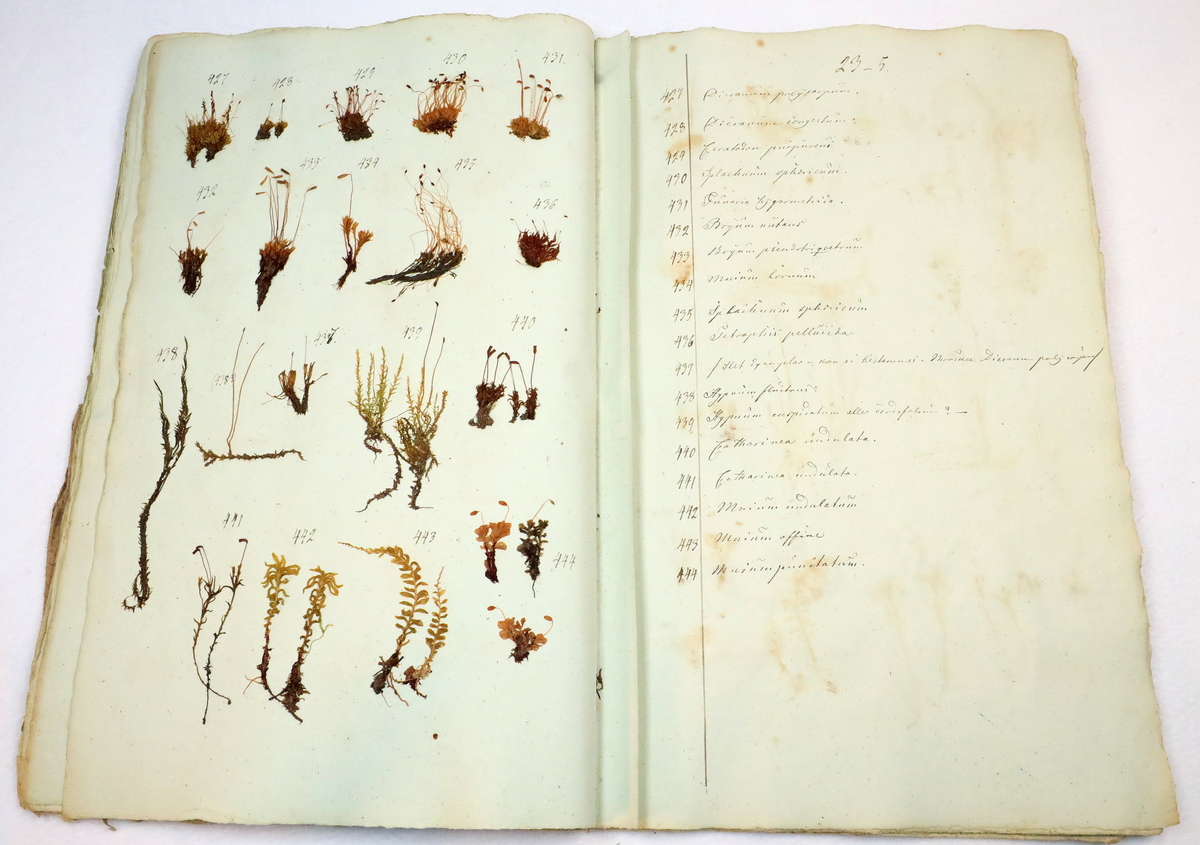 427 428 429 430 431.
432 433 434 435 436
438 (438) 437. 439 440
441 442 443 444
23-5.
427 Dicranum polycarpum.
428 Dicranum congestum?
429 Ceratodon purpureus.
430 Splachnum sphæricum.
431 Funaria hygrometrica.
432 Bryum nutans
433 Bryum pseudotriquetrum
434 Mnium
435 Splachnum sphæricum
436 Tetraphis pellucida
437 Dicranum
438 Hypnum fluitans?
439 Hypnum cuspidatum eller cordifolium? —
440 Catharinea undulata.
441 Catharinea undulata.
442 Mnium undulatum
443 Mnium affine
444 Mnium punctatum.